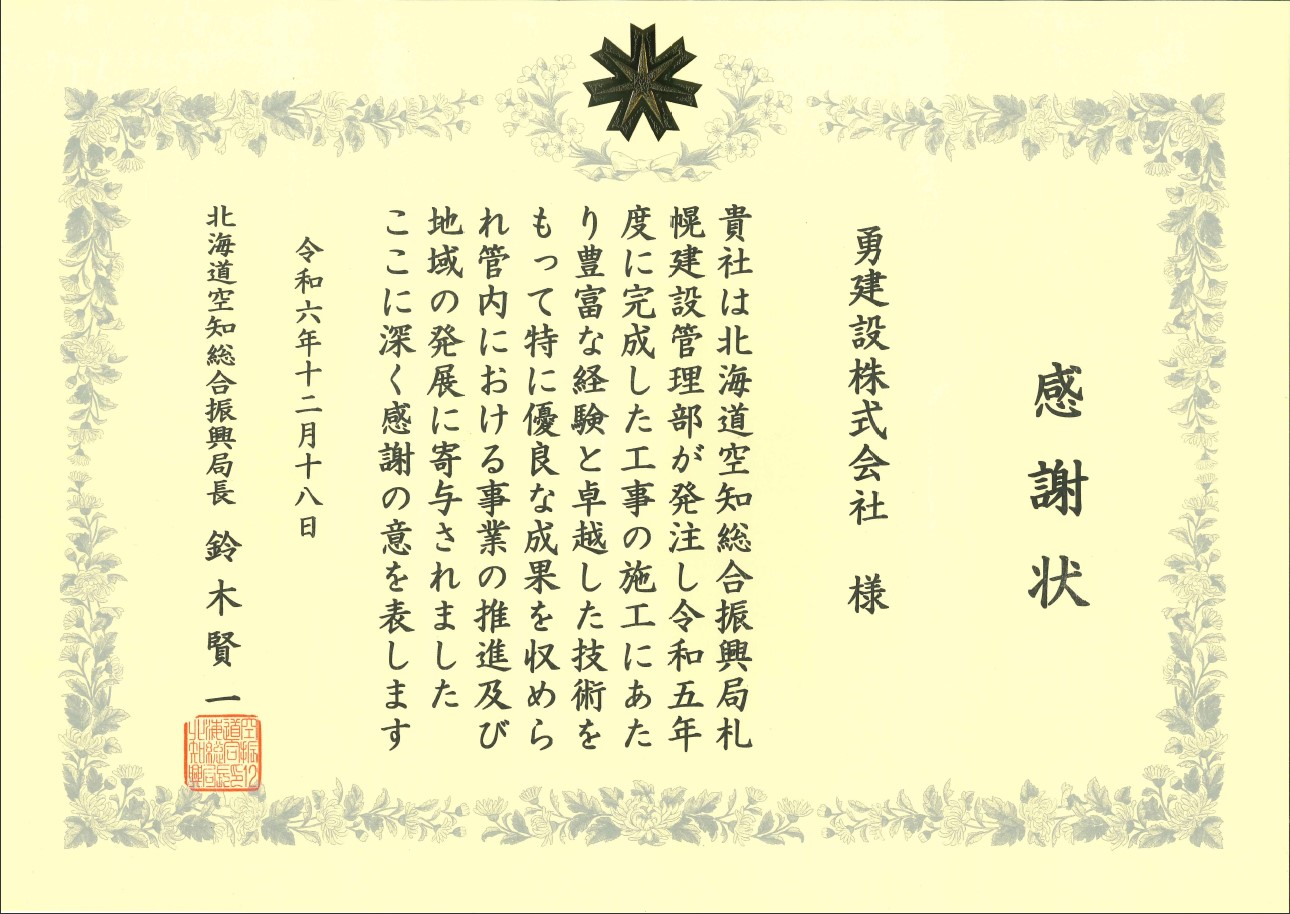 感謝状
勇建設株式会社 様
貴社は北海道空知総合振興局札
幌建設管理部が発注し令和五年
度に完成した工事の施工にあた
り豊富な経験と卓越した技術を
もって特に優良な成果を収めら
れ管内における事業の推進及び
地域の発展に寄与されました
ここに深く感謝の意を表します
令和六年十二月十八日
北海道空知総合振興局長 鈴木賢一